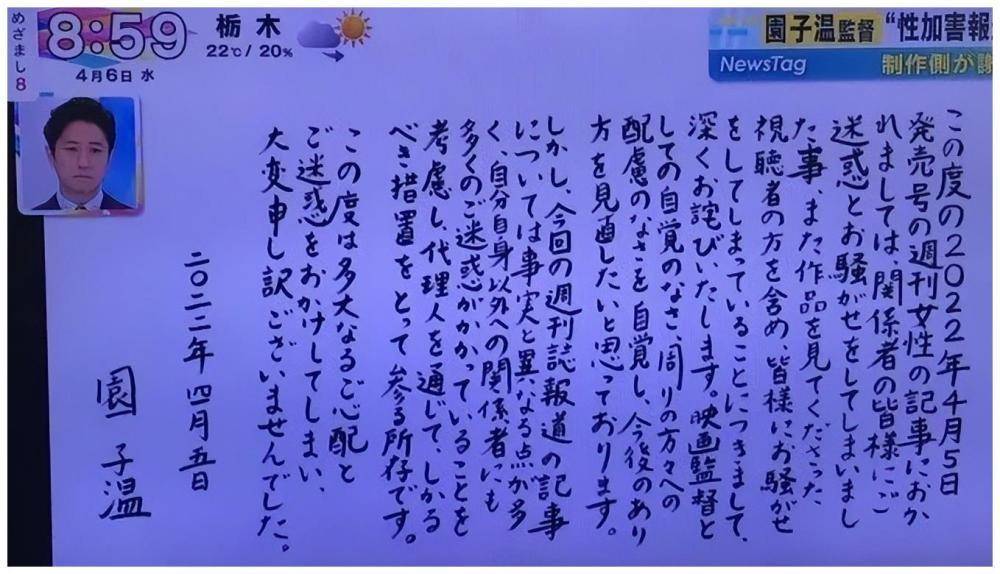 めざまし8
8:59
4月6日 水
栃木
22℃/20%
園子温監督 "性加害報
NewsTag
制作側が謝
この度の2022年4月5日
発売号の週刊女性の記事におか
れましては関係者の皆様にご
迷惑とお騒がせをしてしまいまし
た事、また作品を見てくださった、
視聴者の方を含め、皆様にお騒がせ
をしてしまっていることにつきまして、
深くお詫びいたします。映画監督と
しての自覚のなさ、周りの方々への
配慮のなさを自覚し、今後のあり
方を見直したいと思っております。
しかし、今回の週刊誌報道の記事
については事実と異なる点が多
く、自分自身以外への関係者にも
多くのご迷惑がかかっていることを
考慮し、代理人を通じて、しかる
べき措置をとって参る所存です。
この度は多大なるご心配と
ご迷惑をおかけしてしまい、
大変申し訳ございませんでした。
二〇二二年 四月五日
園子温